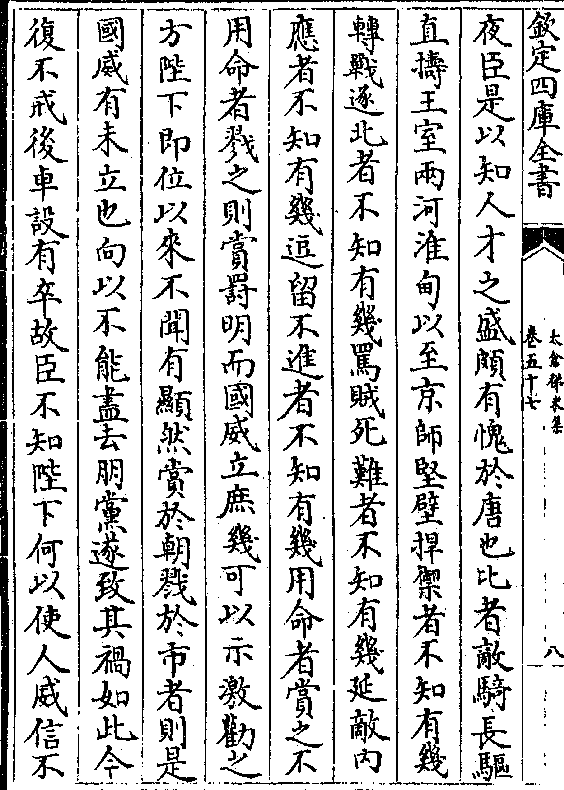 欽定四庫全書
太倉稊米集
卷五十七
八
夜臣是以知人才之盛頗有愧於唐也比者敵騎長驅
直擣王室兩河淮甸以至京師堅壁捍禦者不知有幾
轉戰逐北者不知有幾罵賊死難者不知有幾延敵内
應者不知有幾逗留不進者不知有幾用命者賞之不
用命者戮之則賞罸明而國威立庶幾可以示激勸之
方陛下即位以來不聞有顯然賞於朝戮於市者則是
國威有未立也向以不能盡去朋黨遂致其禍如此今
復不戒後車設有卒故臣不知陛下何以使人威信不